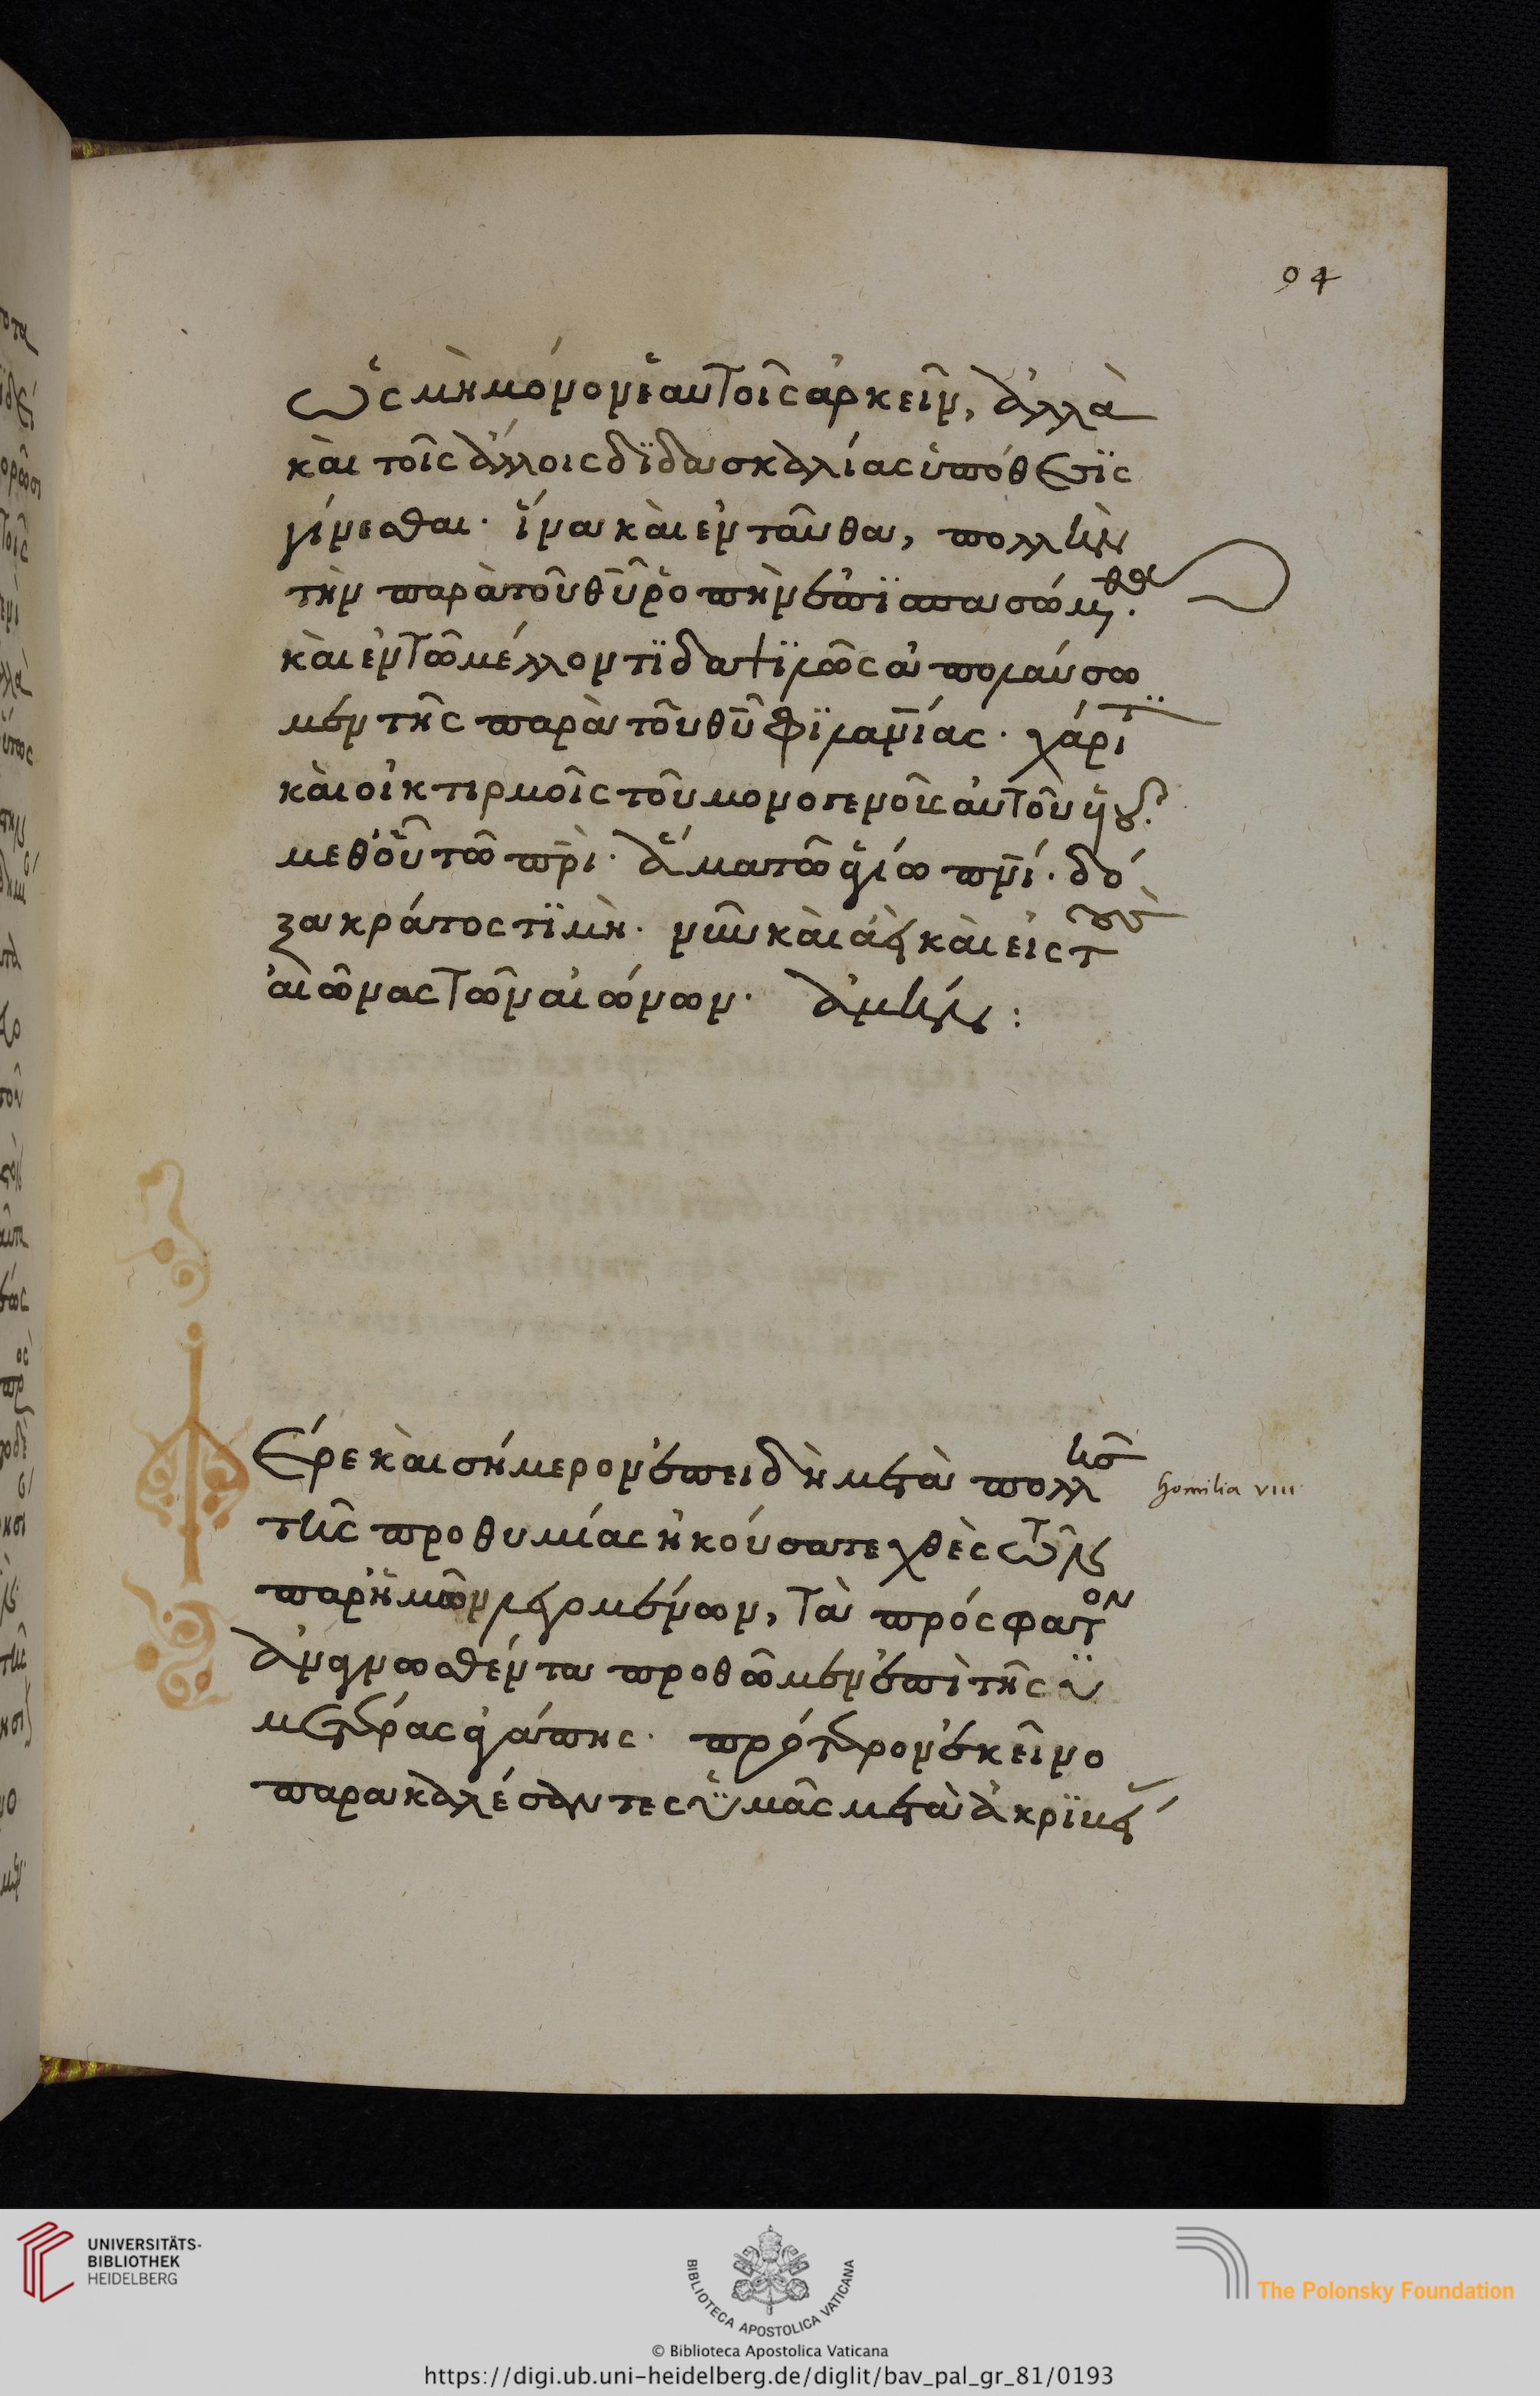 94
ὡς μὴ μόνον ἑαυτοῖς ἀρκεῖν, ἀλλὰ
καὶ τοῖς ἄλλοις διδασκαλίας ὑπόθεσις
γίνεσθαι· ἵνα καὶ ἐνταῦθα, πολλὴν
τὴν παρὰ τοῦ θῦ ῥοπὴν ἐπισπασώμεθα·
καὶ ἐν τῶ μέλλοντι δαψιλῶς ἀπολαύσω
μεν τῆς παρὰ τοῦ θῦ φιλανίας· χάριτι
καὶ οἰκτιρμοῖς τοῦ μονογενοῦς αὐτοῦ υἱοῦ·
μεθ' οὗ τῶ πρι· ἅμα τῶ ἁγίω πνι· δό
ξα κράτος τιμὴ· νῦν καὶ ἀεὶ καὶ εἰς τοὺς
αἰῶνας τῶν αἰώνων· ἀμήν:
Φέρε καὶ σήμερον ἐπειδὴ μετὰ πολλῆς
Homilia VIII
τῆς προθυμίας ἠκούσατε χθὲς τῶν
παρ' ἡμῶν λεγομένων, τὰ πρόσφατον
ἀναγνωσθέντα προθῶμεν ἐπὶ τῆς ὑ
μετέρας ἀγάπης· πρότερον ἐκεῖνο
παρακαλέσαντες ὑμᾶς μετὰ ἀκριβείας
UNIVERSITÄTS-
BIBLIOTHEK
HEIDELBERG
BIBLIOTECA APOSTOLICA VATICANA
The Polonsky Foundation
© Biblioteca Apostolica Vaticana
https://digi.ub.uni-heidelberg.de/diglit/bav_pal_gr_81/0193